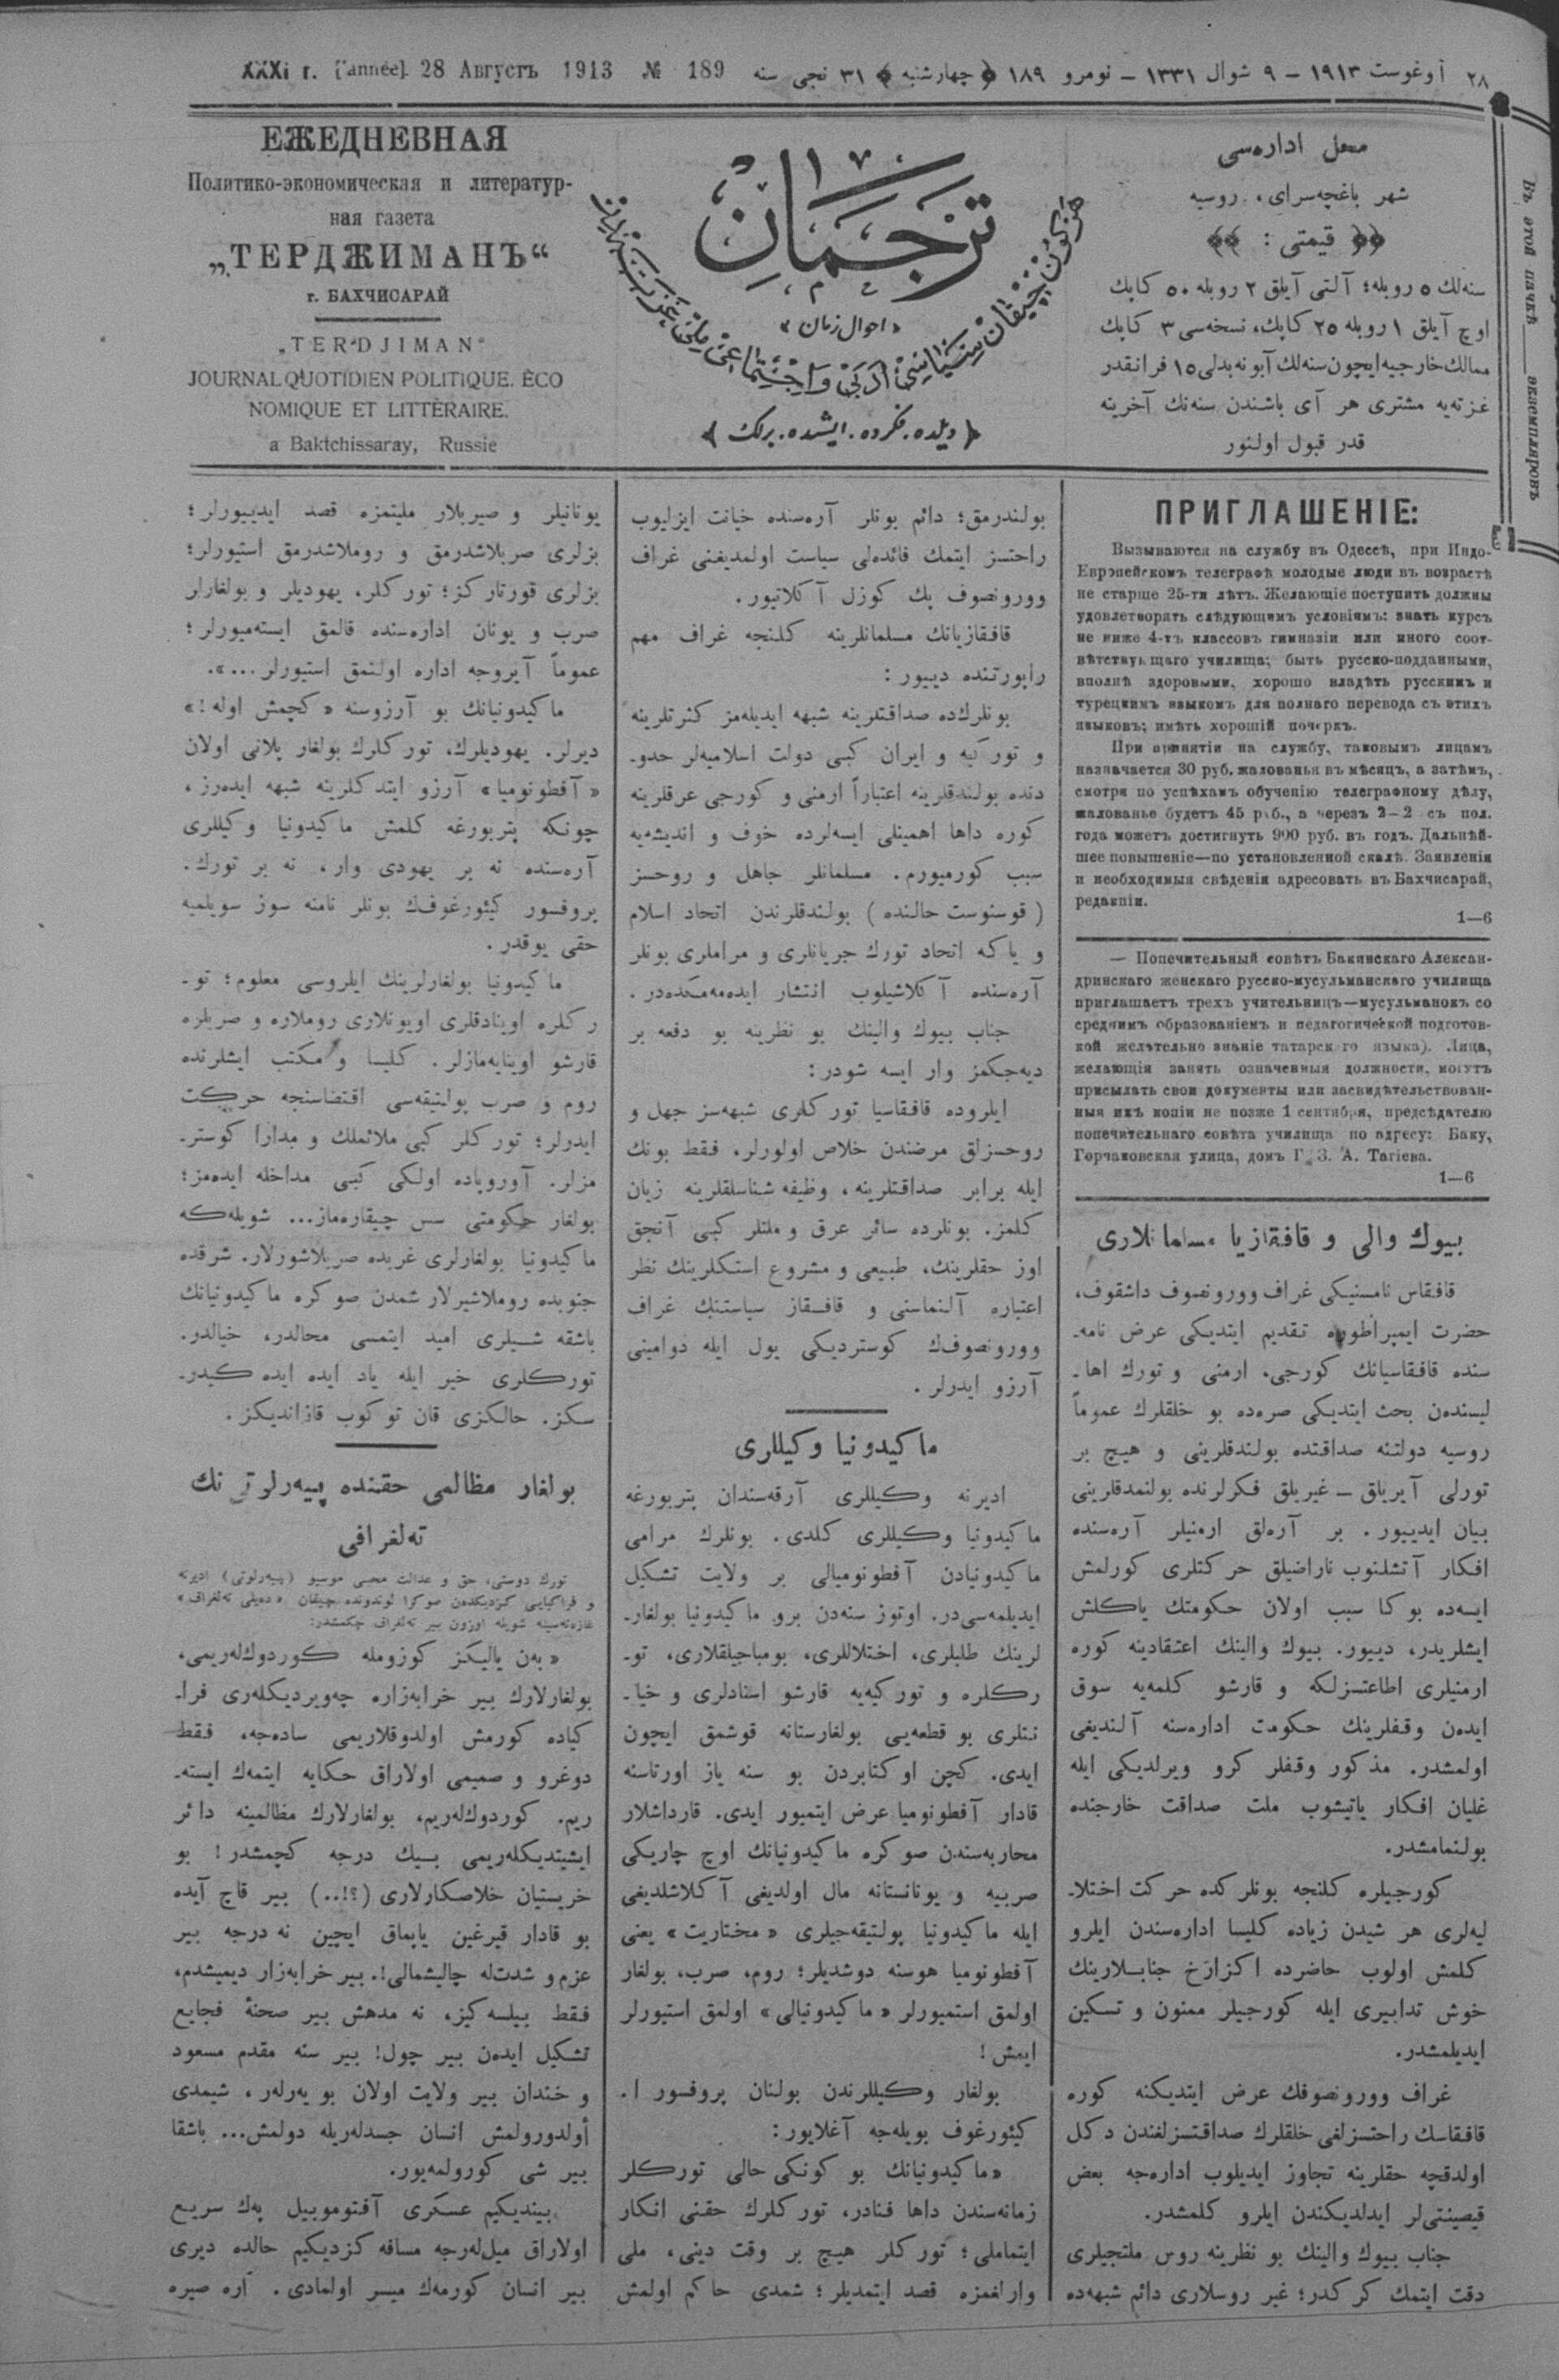 XXXI г. [année]. 28 Августъ 1913 № 189
٢٨ آوغوست ١٩١٣ – ٩ شوال ١٣٣١ – نومرو ١٨٩ ﴿ چهارشنبه ﴾ ٣١ نجی سنه
ЕЖЕДНЕВНАЯ
Политико-экономическая и литератур-
ная газета
„ТЕРДЖИМАНЪ“
г. БАХЧИСАРАЙ
„TERDJIMAN“
JOURNAL QUOTIDIEN POLITIQUE. ÉCO
NOMIQUE ET LITTÈRAIRE.
a Baktchissaray, Russie
ترجمان
«احوال زمان»
هر كون چیقان سیاسی، ادبی و اجتماعی ملی غزته‌در
﴿ دیلده، فكرده، ایشده، برلك ﴾
محل اداره‌سی
شهر باغچه‌سرای، روسیه
﴿﴿ قیمتی: ﴾﴾
سنه‌لك ٥ روبله؛ آلتی آیلق ٢ روبله ٥٠ كاپك
اوچ آیلق ١ روبله ٢٥ كاپك، نسخه‌سی ٣ كاپك
ممالك خارجیه ایچون سنه‌لك آبونه بدلی ١٥ فرانقدر
غزته‌یه مشتری هر آی باشندن سنه‌نك آخرینه
قدر قبول اولنور
Въ этой пачкѣ ____ экземпляровъ
ПРИГЛАШЕНІЕ:
Вызываются на службу въ Одессѣ, при Индо-
Европейскомъ телеграфѣ молодые люди въ возрастѣ
не старше 25-ти лѣтъ. Желающіе поступить должны
удовлетворять слѣдующимъ условіямъ: знать курсъ
не ниже 4-хъ классовъ гимназіи или иного соот-
вѣтствующаго училища; быть русско-подданными,
вполнѣ здоровыми, хорошо владѣть русскимъ и
турецкимъ языкомъ для полнаго перевода съ этихъ
языковъ; имѣть хорошій почеркъ.
При принятіи на службу, таковымъ лицамъ
назначается 30 руб. жалованья въ мѣсяцъ, а затѣмъ,
смотря по успѣхамъ обученію телеграфному дѣлу,
жалованье будетъ 45 руб., а черезъ 2—2 съ пол.
года можетъ достигнуть 900 руб. въ годъ. Дальнѣй-
шее повышеніе—по установленной скалѣ. Заявленія
и необходимыя свѣденія адресовать въ Бахчисарай,
редакціи.
1—6
— Попечительный совѣтъ Бакинскаго Алексан-
дринскаго женскаго русско-мусульманскаго училища
приглашаетъ трехъ учительницъ—мусульманокъ со
среднимъ образованіемъ и педагогической подготов-
кой желательно знаніе татарскаго языка). Лица,
желающія занять означенныя должности, могутъ
присылать свои документы или засвидѣтельствован-
ныя ихъ копіи не позже 1 сентября, предсѣдателю
попечительнаго совѣта училища по адресу: Баку,
Горчаковская улица, домъ Г. З. А. Тагіева.
1—6
بیوك والی و قافقازیا مسلمانلاری
قافقاس نامستنیكی غراف وورونصوف داشقوف،
حضرت ایمپراطوره تقدیم ایتدیكی عرض نامه‌ـ
سنده قافقاسیانك كورجی، ارمنی و تورك اها‌ـ
لیسندەن بحث ایتدیكی صره‌ده بو خلقلرك عموماً
روسیه دولتنه صداقتده بولندقلرینی و هیچ بر
تورلی آیریلق – غیریلق فكرلرنده بولنمدقلرینی
بیان ایدییور. بر آره‌لق ارمنیلر آره‌سنده
افكار آتشلنوب ناراضیلق حركتلری كورلمش
ایسه‌ده بوكا سبب اولان حكومتك یاكلش
ایشلریدر، دییور. بیوك والینك اعتقادینه كوره
ارمنیلری اطاعتسزلكه و قارشو كلمه‌یه سوق
ایدەن وقفلرینك حكومت اداره‌سنه آلندیغی
اولمشدر. مذكور وقفلر كرو ویرلدیكی ایله
غلیان افكار یاتیشوب ملت صداقت خارجنده
بولنمامشدر.
كورجیلره كلنجه بونلركده حركت اختلا‌ـ
لیه‌لری هر شیدن زیاده كلیسا اداره‌سندن ایلرو
كلمش اولوب حاضرده اكزارخ جنابلارینك
خوش تدابیری ایله كورجیلر ممنون و تسكین
ایدیلمشدر.
غراف وورونصوفك عرض ایتدیكنه كوره
قافقاسك راحتسزلغی خلقلرك صداقتسزلغندن دكل
اولدقچه حقلرینه تجاوز ایدیلوب اداره‌جه بعض
قیصینتی‌لر ایدلدیكندن ایلرو كلمشدر.
جناب بیوك والینك بو نظرینه روس ملتجیلری
دقت ایتمك كركدر؛ غیر روسلاری دائم شبهه‌ده
بولندرمق؛ دائم بونلر آره‌سنده خیانت ایزلیوب
راحتسز ایتمك فائده‌لی سیاست اولمدیغنی غراف
وورونصوف پك كوزل آكلاتیور.
قافقازیانك مسلمانلرینه كلنجه غراف مهم
راپورتنده دییور:
بونلرك‌ده صداقتلرینه شبهه ایدیله‌مز كثرتلرینه
و توركیه و ایران كبی دولت اسلامیه‌لر حدو‌ـ
دنده بولندقلرینه اعتباراً ارمنی و كورجی عرقلرینه
كوره داها اهمیتلی ایسه‌لرده خوف و اندیشه‌یه
سبب كورمیورم. مسلمانلر جاهل و روحسز
(قوسنوست حالنده) بولندقلرندن اتحاد اسلام
و یا كه اتحاد تورك جریانلری و مراملری بونلر
آره‌سنده آكلاشیلوب انتشار ایده‌مه‌مكده‌در.
جناب بیوك والینك بو نظرینه بو دفعه بر
دیه‌جكمز وار ایسه شودر:
ایلروده قافقاسیا توركلری شبهه‌سز جهل و
روحسزلق مرضندن خلاص اولورلر، فقط بونك
ایله برابر صداقتلرینه، وظیفه شناسلقلرینه زیان
كلمز. بونلرده سائر عرق و ملتلر كبی آنجق
اوز حقلرینك، طبیعی و مشروع استكلرینك نظر
اعتباره آلنماسنی و قافقاز سیاستنك غراف
وورونصوفك كوستردیكی یول ایله دوامینی
آرزو ایدرلر.
ماكیدونیا وكیللری
ادیرنه وكیللری آرقه‌سندان پتربورغه
ماكیدونیا وكیللری كلدی. بونلرك مرامی
ماكیدونیادن آفطونومیالی بر ولایت تشكیل
ایدیلمه‌سی‌در. اوتوز سنه‌دن برو ماكیدونیا بولغار‌ـ
لرینك طلبلری، اختلاللری، بومباجیلقلاری، تو‌ـ
ركلره و توركیه‌یه قارشو اسنادلری و خیا‌ـ
نتلری بو قطعه‌یی بولغارستانه قوشمق ایچون
ایدی. كچن اوكتابردن بو سنه یاز اورتاسنه
قادار آفطونومیا عرض ایتمیور ایدی. قارداشلار
محاربه‌سندن صوكره ماكیدونیانك اوچ چاریكی
صربیه و یونانستانه مال اولدیغی آكلاشلدیغی
ایله ماكیدونیا پولتیقه‌جیلری «مختاریت» یعنی
آفطونومیا هوسنه دوشدیلر؛ روم، صرب، بولغار
اولمق استمیورلر «ماكیدونیالی» اولمق استیورلر
ایمش!
بولغار وكیللرندن بولنان پروفسور ا.
كیئورغوف بویله‌جه آغلایور:
«ماكیدونیانك بو كونكی حالی توركلر
زمانه‌سندن داها فنادر، توركلرك حقنی انكار
ایتماملی؛ توركلر هیچ بر وقت دینی، ملی
وارلغمزه قصد ایتمدیلر؛ شمدی حاكم اولمش
یونانیلر و صیربلار ملیتمزه قصد ایدییورلر؛
بزلری صربلاشدرمق و روملاشدرمق استیورلر؛
بزلری قورتاركز؛ توركلر، یهودیلر و بولغارلر
صرب و یونان اداره‌سنده قالمق ایسته‌میورلر؛
عموماً آیروجه اداره اولنمق استیورلر...».
ماكیدونیانك بو آرزوسنه «كچمش اوله!»
دیرلر. یهودیلرك، توركلرك بولغار پلانی اولان
«آفطونومیا» آرزو ایتدكلرینه شبهه ایده‌رز،
چونكه پتربورغه كلمش ماكیدونیا وكیللری
آره‌سنده نه بر یهودی وار، نه بر تورك.
پروفسور كیئورغوفك بونلر نامنه سوز سویلمیه
حقی یوقدر.
ماكیدونیا بولغارلرینك ایلروسی معلوم؛ تو‌ـ
ركلره اوینادقلری اویونلاری روملاره و صربلره
قارشو اوینایه‌مازلر. كلیسا و مكتب ایشلرنده
روم و صرب پولتیقه‌سی اقتضاسنجه حركت
ایدرلر؛ توركلر كبی ملائملك و مدارا كوستر‌ـ
مزلر. آوروپاده اولكی كبی مداخله ایده‌مز؛
بولغار حكومتی سس چیقاره‌ماز... شویله‌كه
ماكیدونیا بولغارلری غربده صربلاشورلار. شرقده
جنوبده روملاشیرلار شمدن صوكره ماكیدونیانك
باشقه شیلری امید ایتمسی محالدر، خیالدر.
توركلری خیر ایله یاد ایده ایده كیدر‌ـ
سكز. حالكزی قان توكوب قازاندیكز.
بولغار مظالمی حقنده پییه‌رلوتی نك
ته‌لغرافی
تورك دوستی، حق و عدالت محبی موسیو (پییه‌رلوتی) ادیرنه
و تراكیایی كزدیكدەن صوكرا لوندونده چیقان «ده‌یلی ته‌لغراف»
غازه‌ته‌سینه شویله اوزون بیر ته‌لغراف چكمشدر:
«به‌ن یالیكز كوزومله كوردوك‌له‌ریمی،
بولغارلارك بیر خرابه‌زاره چه‌ویردیكله‌ری ترا‌ـ
كیاده كورمش اولدوقلاریمی ساده‌جه، فقط
دوغرو و صمیمی اولاراق حكایه ایتمه‌ك ایسته‌ـ
ریم. كوردوك‌له‌ریم، بولغارلارك مظالمینه دائر
ایشیتدیكله‌ریمی بیك درجه كچمشدر! بو
خریستیان خلاصكارلاری (؟!..) بیر قاچ آیده
بو قادار قیرغین یاپماق ایچین نه درجه بیر
عزم و شدت‌له چالیشمالی!. بیر خرابه‌زار دیمیشدم،
فقط بیلسه‌كیز، نه مدهش بیر صحنهٔ فجایع
تشكیل ایدەن بیر چول! بیر سنه مقدم مسعود
و خندان بیر ولایت اولان بو یه‌رله‌ر، شیمدی
أولدورولمش انسان جسدله‌ریله دولمش... باشقا
بیر شی كورولمه‌یور.
بیندیكیم عسكری آفتوموبیل پك سریع
اولاراق میل‌له‌رجه مسافه كزدیكیم حالده دیری
بیر انسان كورمه‌ك میسر اولمادی. آره صیره